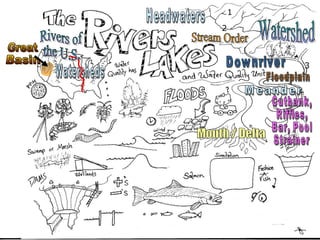 The
Rivers
Lakes
and Water Quality Unit
Headwaters
1
2
Stream Order
Watershed
Rivers of
the U.S.
Great
Basin
Watersheds
Water
Quality has
Downriver
Floodplain
Meander
Cutbank,
Riffles,
Bar, Pool
Strainer
FLOODS
Mouth / Delta
Swamp or Marsh
Wetlands
DAMS
+'s
-'s
Salmon
Simulation
Fish